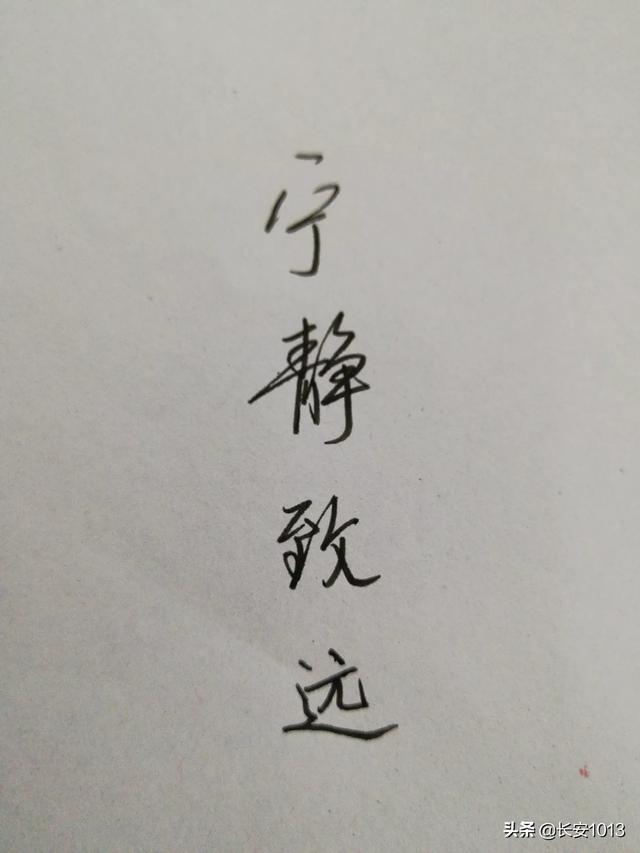 宁静致远
头条 @长安1013